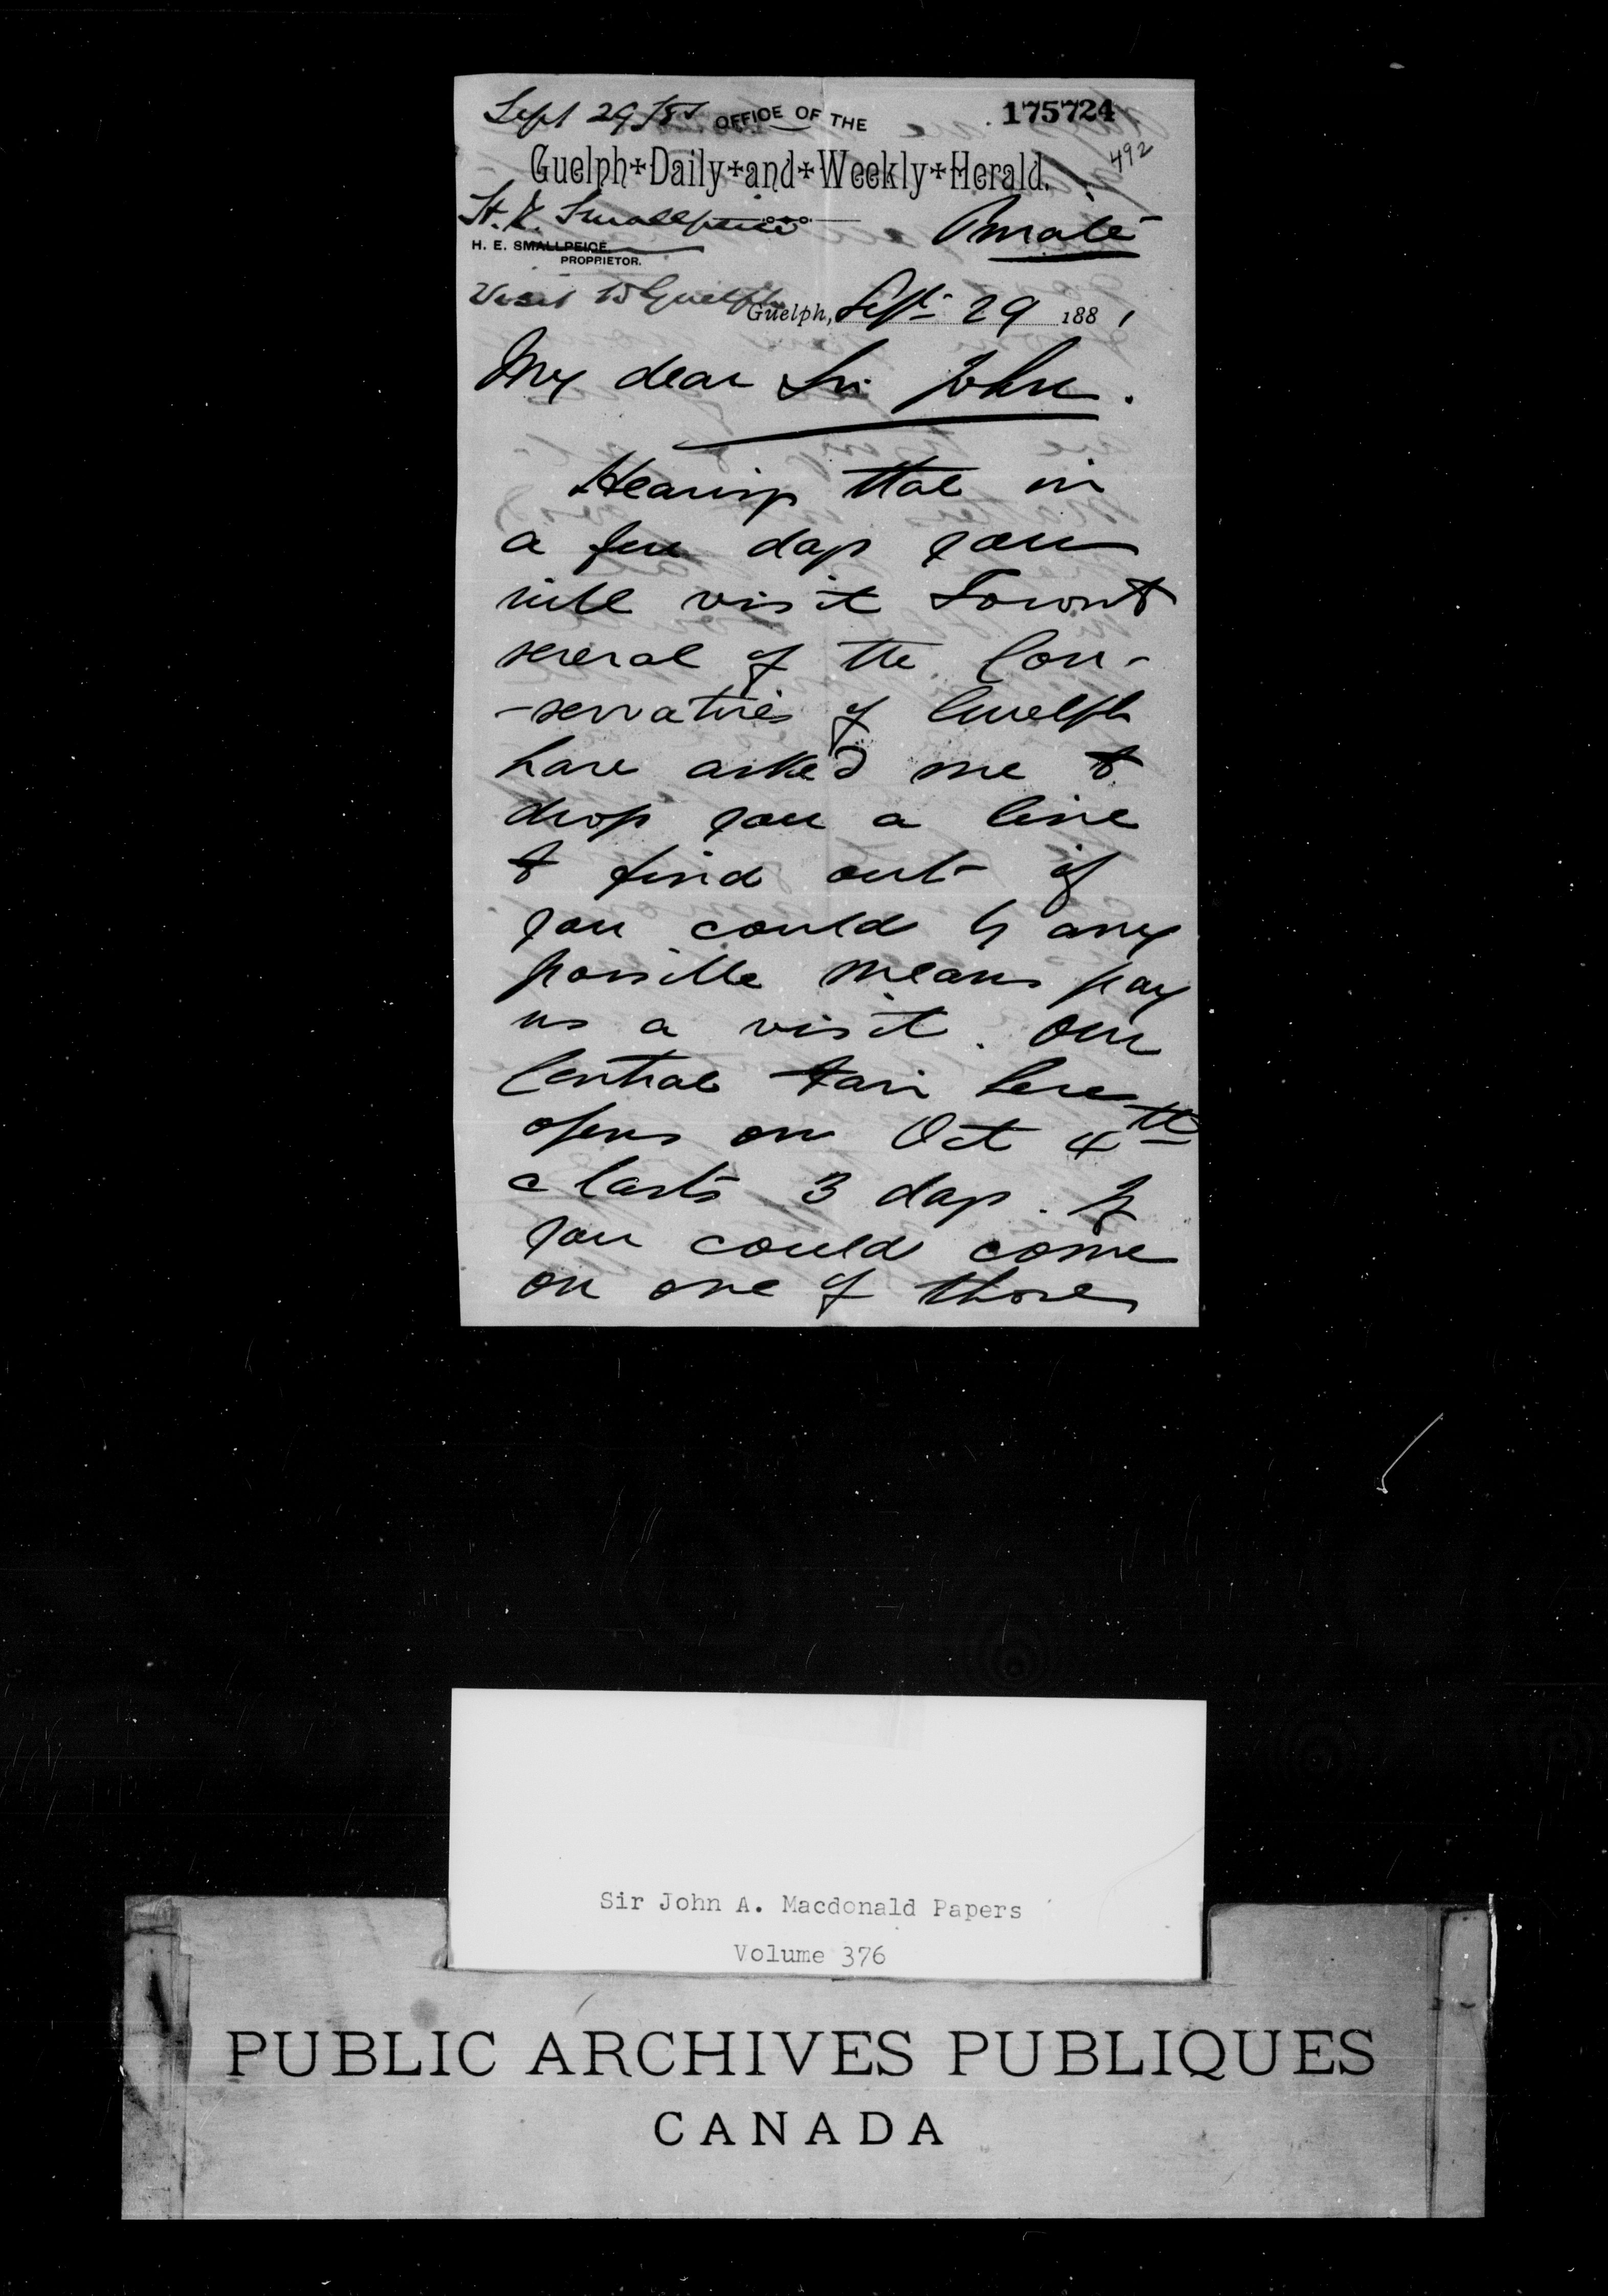 Sept 29/81 OFFICE OF THE 175724
492
Guelph+Daily+and+Weekly+Herald.
H. E. Smallpeice Private
H. E. SMALLPEICE,
PROPRIETOR.
Visit to Guelph
Guelph, Sept 29 1881
My dear Sir John.
Hearing that in
a few days you
will visit Toronto
several of the Con-
-servatives of Guelph
have asked me to
drop you a line
to find out if
you could by any
possible means pay
us a visit. Our
Central Fair here
opens on Oct 4th
& lasts 3 days. If
you could come
on one of those
Sir John A. Macdonald Papers
Volume 376
PUBLIC ARCHIVES PUBLIQUES
CANADA